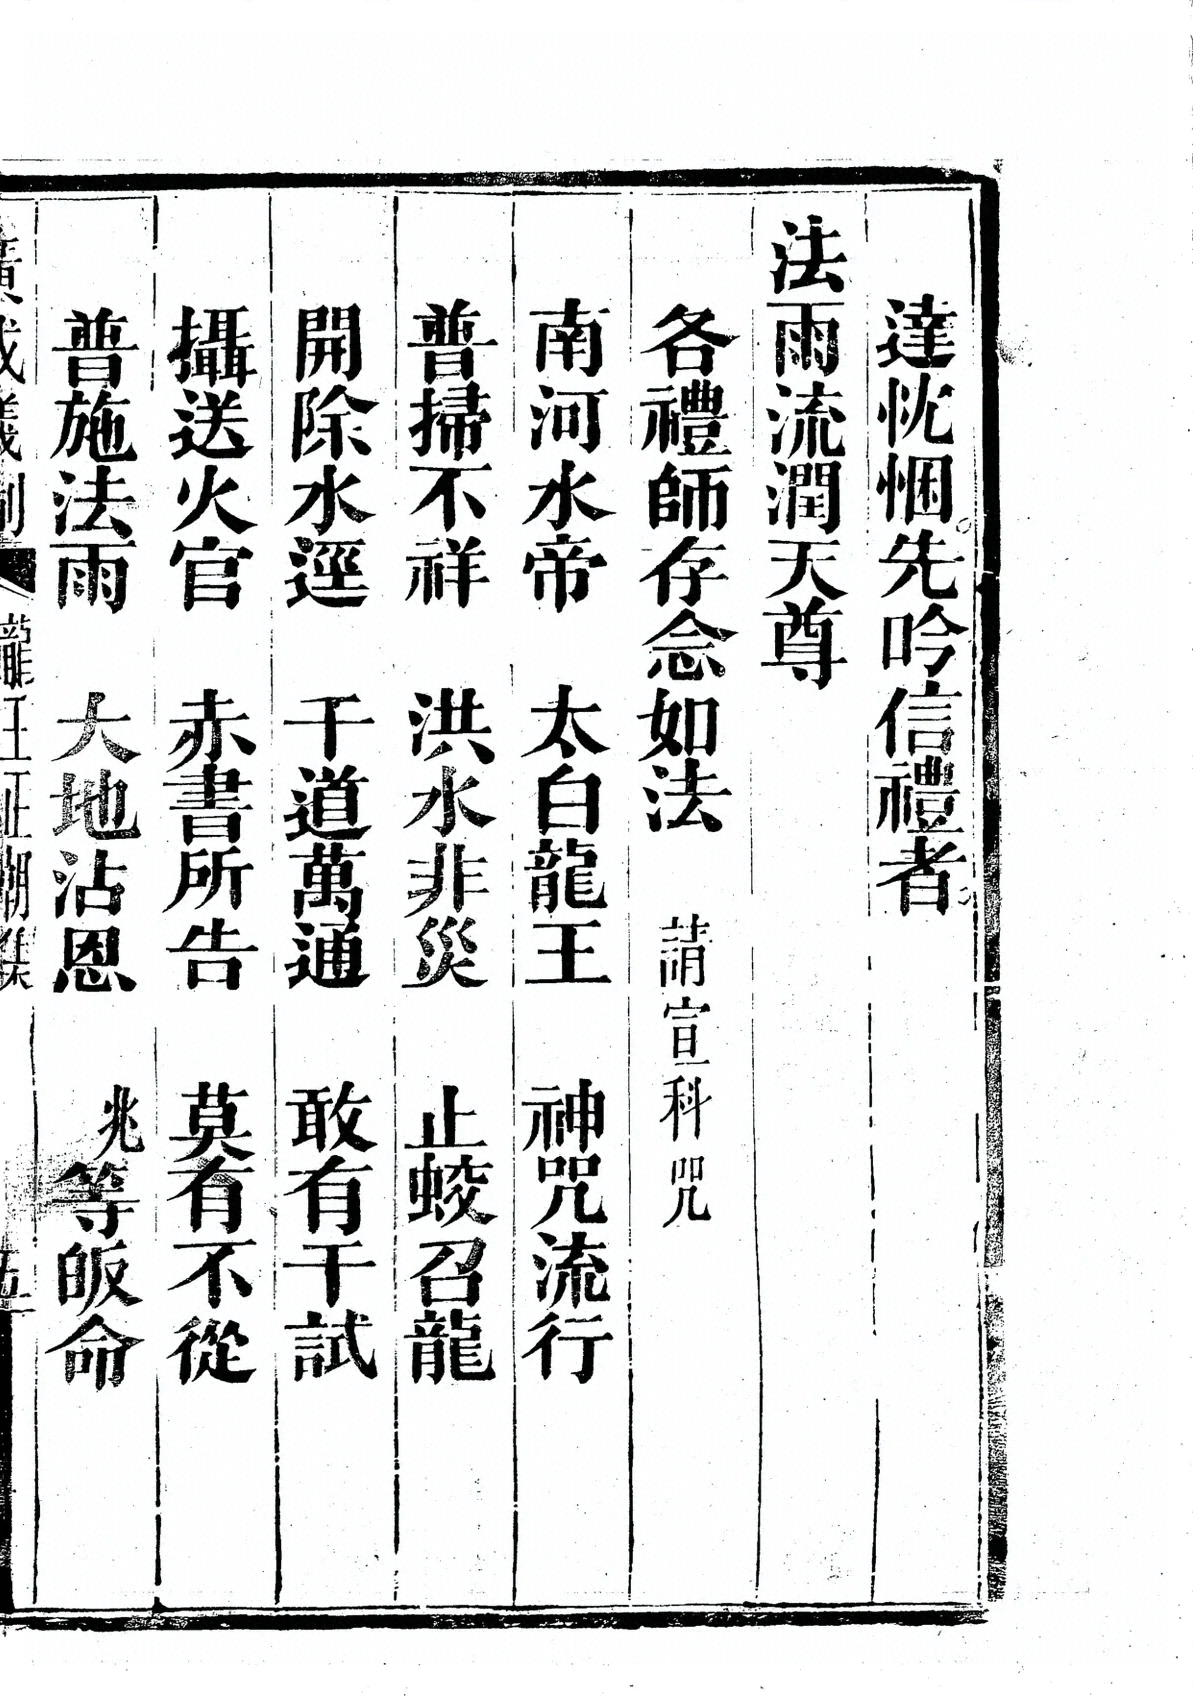 達忱悃先吟信禮者
法雨流潤天尊
各禮師存念如法 請宣科咒
南河水帝 太白龍王 神咒流行
普掃不祥 洪水非災 止蛟召龍
開除水逕 千道萬通 敢有干試
攝送火官 赤書所告 莫有不從
普施法雨 大地沾恩 兆等皈命
廣成儀制 龍王正朝集 五